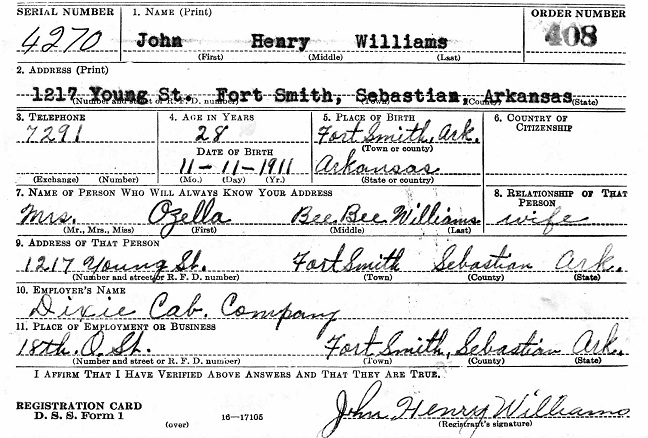 SERIAL NUMBER 1. NAME (Print) ORDER NUMBER
4270 John Henry Williams 408
(First) (Middle) (Last)
2. ADDRESS (Print)
1217 Young St. Fort Smith, Sebastian, Arkansas
(Number and street or R. F. D. number) (Town) (County) (State)
3. TELEPHONE 4. AGE IN YEARS 5. PLACE OF BIRTH 6. COUNTRY OF CITIZENSHIP
7291 28 Fort Smith, Ark.
(Town or county)
DATE OF BIRTH
11-11-1911 Arkansas
(Exchange) (Number) (Mo.) (Day) (Yr.) (State or country)
7. NAME OF PERSON WHO WILL ALWAYS KNOW YOUR ADDRESS 8. RELATIONSHIP OF THAT PERSON
Mrs. Ozella Bee Bee Williams wife
(Mr., Mrs., Miss) (First) (Middle) (Last)
9. ADDRESS OF THAT PERSON
1217 Young St. Fort Smith Sebastian Ark.
(Number and street or R. F. D. number) (Town) (County) (State)
10. EMPLOYER'S NAME
Dixie Cab. Company
11. PLACE OF EMPLOYMENT OR BUSINESS
18th. O. St. Fort Smith, Sebastian Ark.
(Number and street or R. F. D. number) (Town) (County) (State)
I AFFIRM THAT I HAVE VERIFIED ABOVE ANSWERS AND THAT THEY ARE TRUE.
REGISTRATION CARD
D. S. S. Form 1 (over) 16—17105 John Henry Williams
(Registrant's signature)